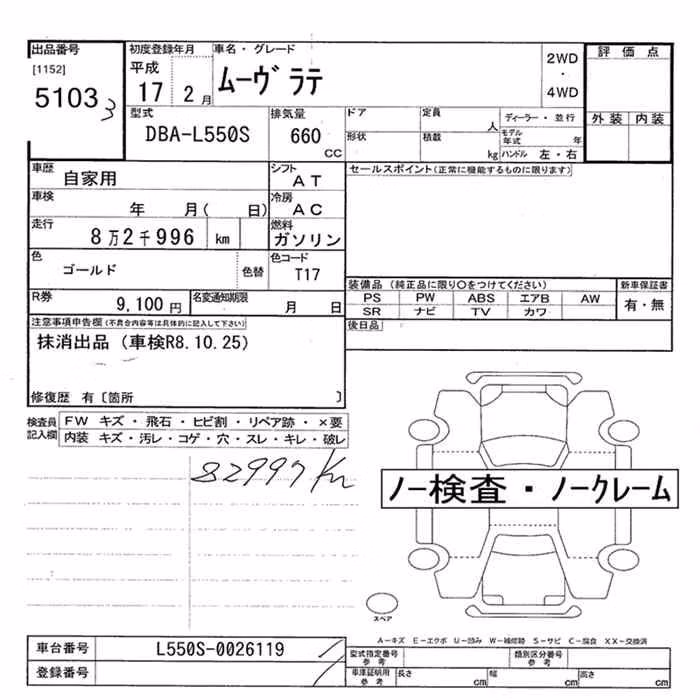 出品番号
[1152]
5103 3
初度登録年月
平成
17 2月
車名・グレード
ムーヴ ラテ
2WD
・
4WD
評価点
外装 内装
型式
DBA-L550S
排気量
660
CC
ドア
形状
定員
人
積載
kg
ディーラー・並行
モデル年式 年
ハンドル 左・右
車歴
自家用
シフト
AT
セールスポイント(正常に機能するものに限ります)
車検
年 月( 日)
冷房
AC
走行
8万2千996 km
燃料
ガソリン
色
ゴールド
色替
色コード
T17
装備品 (純正品に限り○をつけてください)
PS PW ABS エアB AW
SR ナビ TV カワ
新車保証書
有・無
R券
9,100円
名変通知期限
月 日
後日品
注意事項申告欄(不具合内容等は具体的に記入して下さい)
抹消出品 (車検R8.10.25)
修復歴 有〔箇所 〕
検査員記入欄
FW キズ・飛石・ヒビ割・リペア跡・×要
内装 キズ・汚レ・コゲ・穴・スレ・キレ・破レ
82997Km
ノー検査・ノークレーム
スペア
A−キズ E−エクボ U−凹み W−補修跡 S−サビ C−腐食 XX−交換済
車台番号
L550S-0026119
登録番号
型式指定番号
参考
類別区分番号
参考
車庫証明用
参考
長さ cm
幅 cm
高さ cm